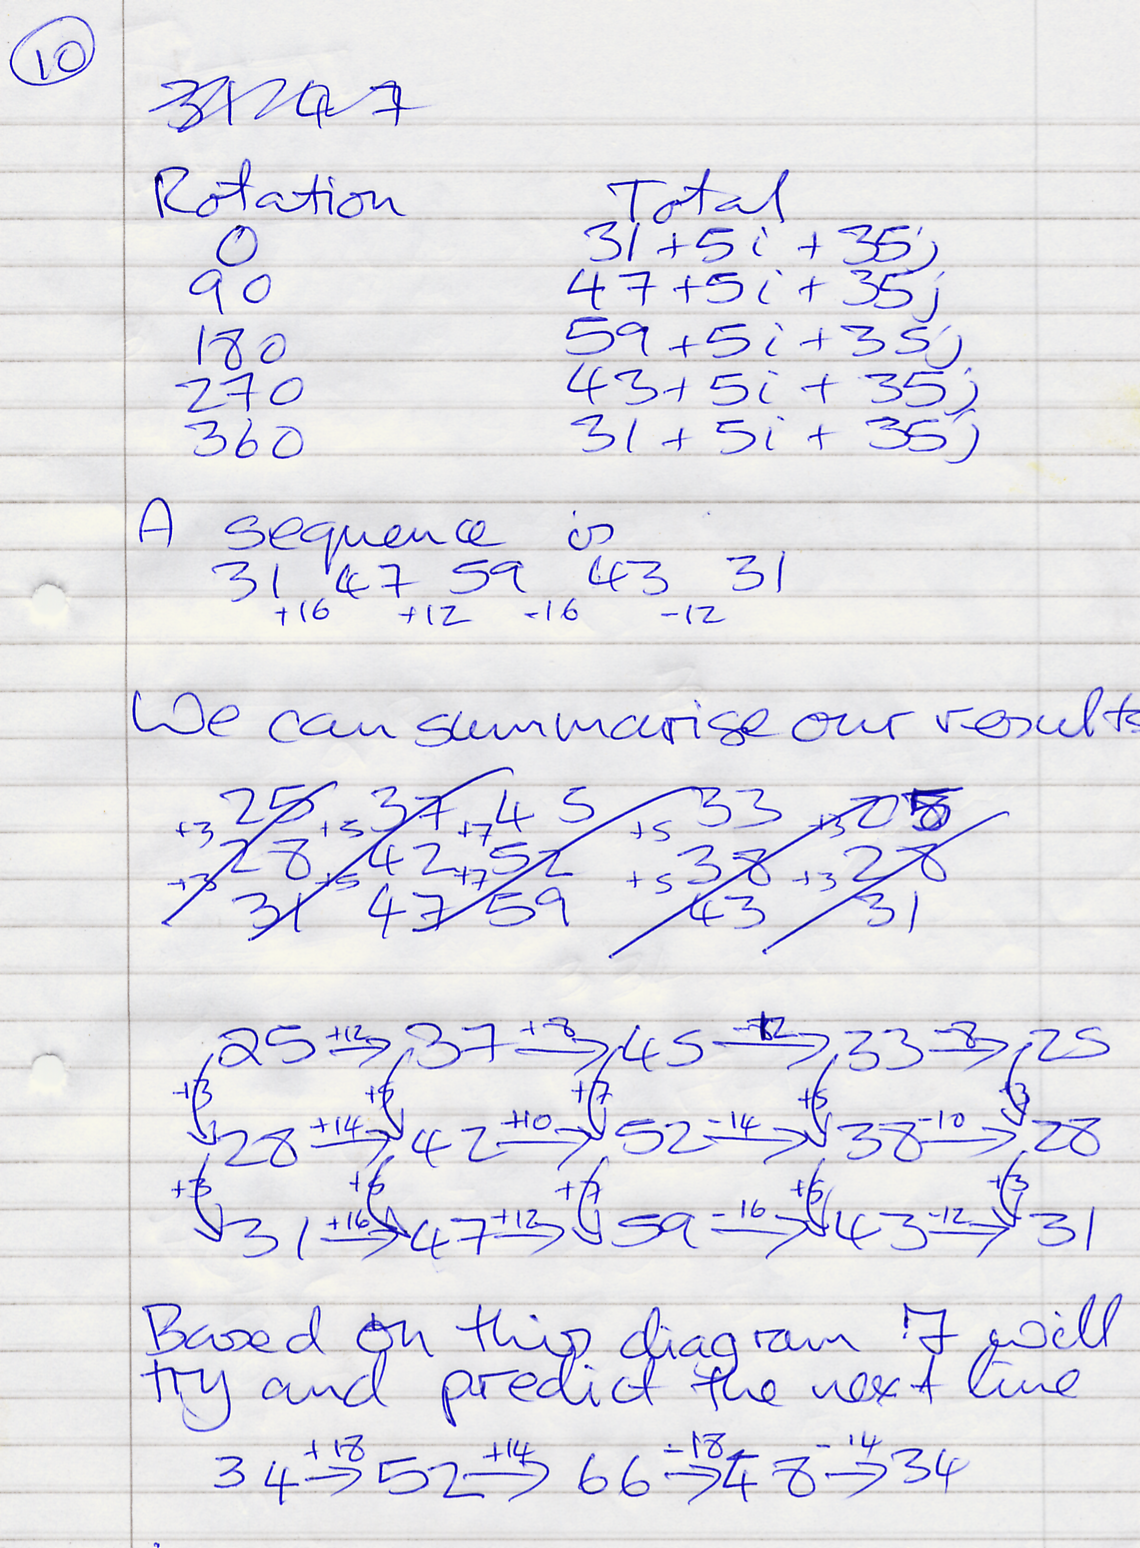 10
31 47
Rotation Total
0 31 + 5i + 35j
90 47 + 5i + 35j
180 59 + 5i + 35j
270 43 + 5i + 35j
360 31 + 5i + 35j
A sequence is
31 47 59 43 31
+16 +12 -16 -12
We can summarise our results
25 37 45 33 25
+3 +5 +7 +5 +3
28 42 52 38 28
+3 +5 +7 +5 +3
31 47 59 43 31
25 +12→ 37 +8→ 45 -12→ 33 -8→ 25
+3 +5 +7 +5 +3
28 +14→ 42 +10→ 52 -14→ 38 -10→ 28
+3 +5 +7 +5 +3
31 +16→ 47 +12→ 59 -16→ 43 -12→ 31
Based on this diagram I will
try and predict the next line
34 +18→ 52 +14→ 66 -18→ 48 -14→ 34